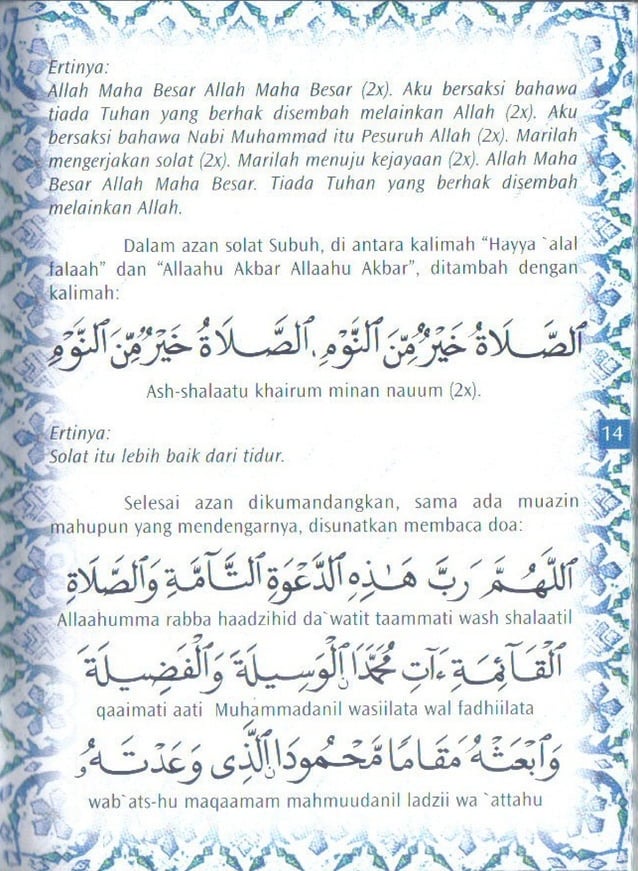 Ertinya:
Allah Maha Besar Allah Maha Besar (2x). Aku bersaksi bahawa
tiada Tuhan yang berhak disembah melainkan Allah (2x). Aku
bersaksi bahawa Nabi Muhammad itu Pesuruh Allah (2x). Marilah
mengerjakan solat (2x). Marilah menuju kejayaan (2x). Allah Maha
Besar Allah Maha Besar. Tiada Tuhan yang berhak disembah
melainkan Allah.
Dalam azan solat Subuh, di antara kalimah “Hayya `alal
falaah” dan “Allaahu Akbar Allaahu Akbar”, ditambah dengan
kalimah:
الصَّلَاةُ خَيْرٌ مِّنَ النَّوْمِ. الصَّلَاةُ خَيْرٌ مِّنَ النَّوْمِ
Ash-shalaatu khairum minan nauum (2x).
Ertinya:
14
Solat itu lebih baik dari tidur.
Selesai azan dikumandangkan, sama ada muazin
mahupun yang mendengarnya, disunatkan membaca doa:
اَللّٰهُمَّ رَبَّ هٰذِهِ الدَّعْوَةِ التَّآمَّةِ وَالصَّلَاةِ
Allaahumma rabba haadzihid da`watit taammati wash shalaatil
الْقَآئِمَةِ ءَاتِ مُحَمَّدَا الْوَسِيلَةَ وَالْفَضِيلَةَ
qaaimati aati Muhammadanil wasiilata wal fadhiilata
وَابْعَثْهُ مَقَامًا مَّحْمُودَا الَّذِى وَعَدْتَهُ
wab`ats-hu maqaamam mahmuudanil ladzii wa `attahu